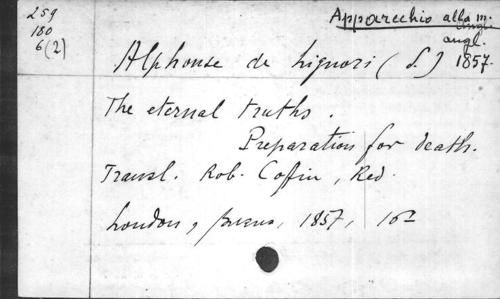 259
180
6(2)
Apparecchio alla m.
angl.
1857.
Alphonse de Liguori (S.)
The eternal truths.
Preparation for death.
Transl. Rob. Coffin, Red.
London, Burns, 1857, 16º